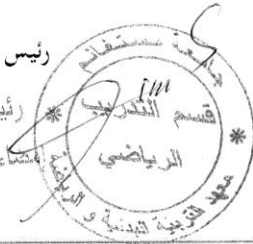 رئيس
جامعة مستغانم
قسم التدريب
الرياضي
معهد التربية البدنية و الرياضية